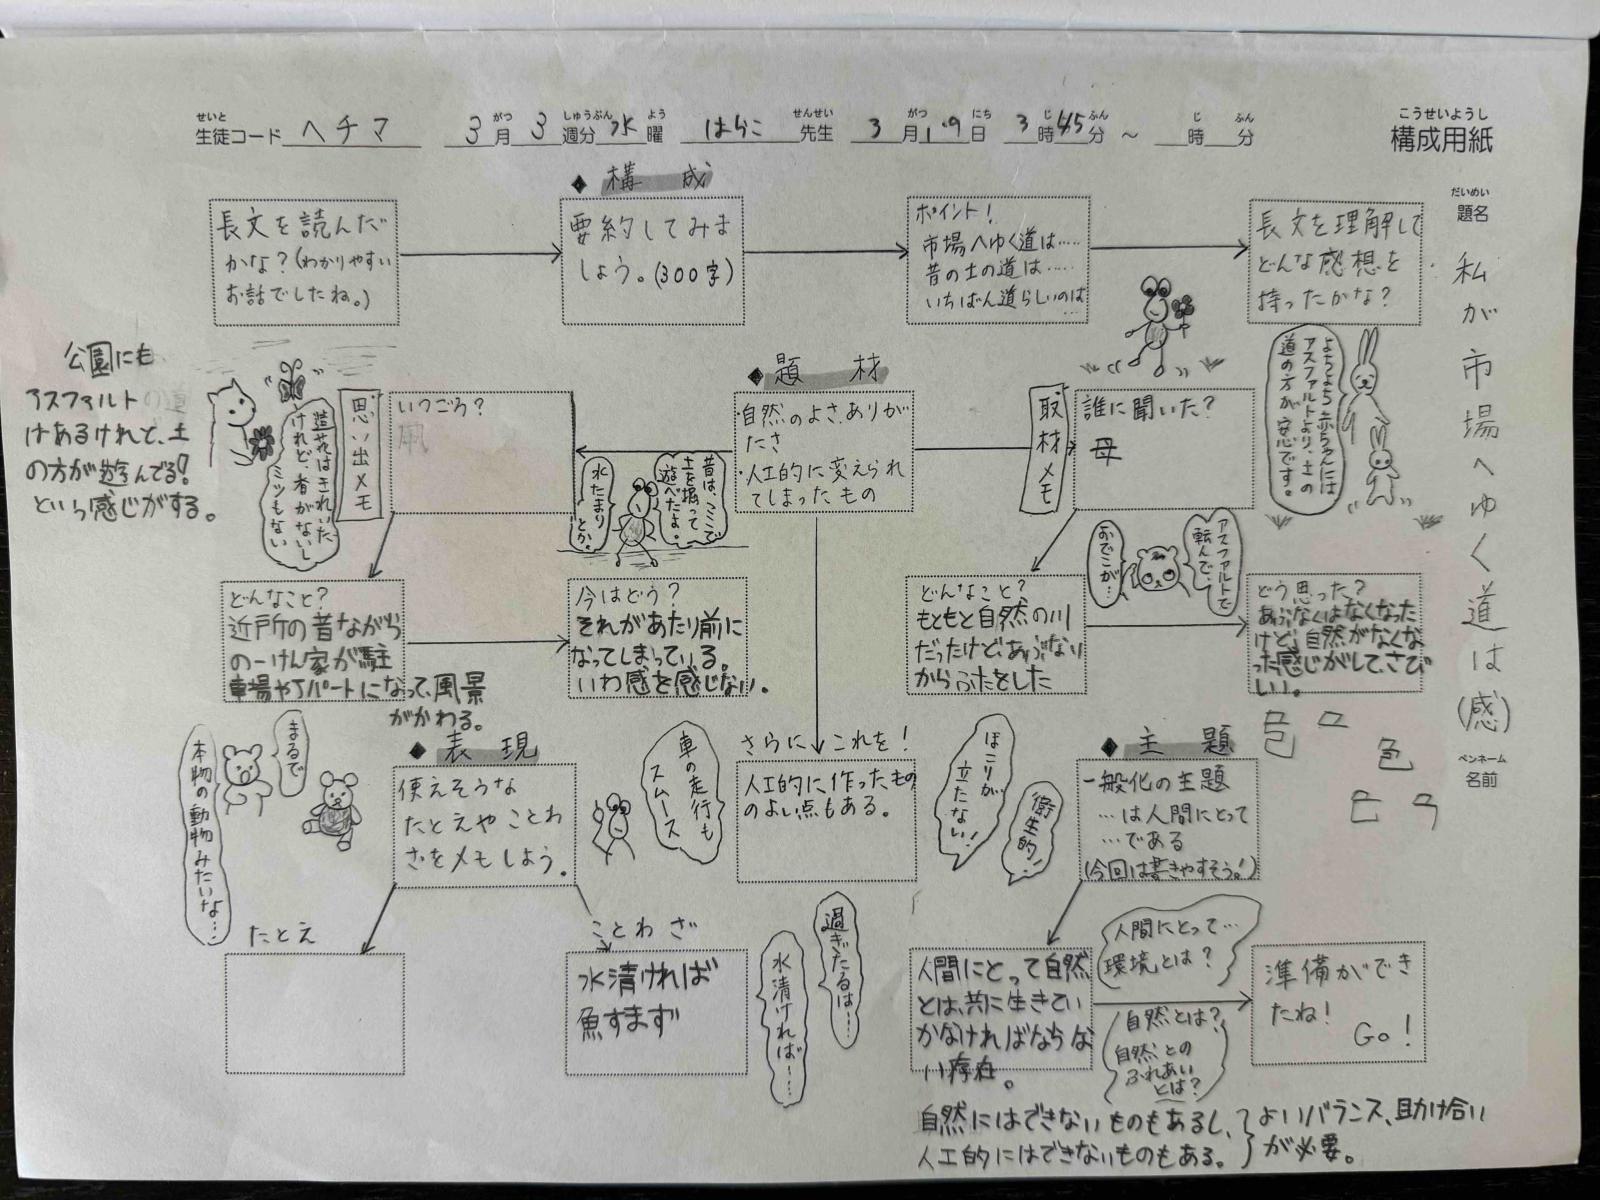 せいと がつ しゅうぶん よう せんせい がつ にち じ ふん じ ふん
生徒コード ヘチマ 3月3週分 水曜 はらこ先生 3月19日 3時45分 ～ 時 分
こうせいようし
構成用紙
だいめい
題名
私が市場へゆく道は(感)
ペンネーム
名前
◆構成
長文を読んだ
かな?(わかりやすい
お話でしたね。)
要約してみま
しょう。(300字)
ポイント!
市場へゆく道は……
昔の土の道は……
いちばん道らしいのは…
長文を理解して
どんな感想を
持ったかな?
よちよち赤ちゃんには
アスファルトより、土の
道の方が安心です。
◆題材
・自然のよさ、ありが
たさ
・人工的に変えられ
てしまったもの
取材メモ
誰に聞いた?
母
どんなこと?
もともと自然の川
だったけど、あぶない
からふたをした
どう思った?
あぶなくはなくなった
けど、自然がなくな
った感じがして、さび
しい。
アスファルトで
転んで、
おでこが…
思い出メモ
いつごろ?
公園にも
アスファルトの道
はあるけれど、土
の方が遊んでる!
という感じがする。
造花はきれいだ
けれど、香がないし
ミツもない
昔は、ここで
土を掘って
遊べたよ。
水たまり
とか。
どんなこと?
近所の昔ながら
の一けん家が駐
車場やアパートになって、風景
がかわる。
今はどう?
それがあたり前に
なってしまっている。
いわ感を感じない。
さらにこれを!
人工的に作ったもの
のよい点もある。
車の走行も
スムース
ほこりが
立たない!
衛生的!
◆表現
使えそうな
たとえやことわ
ざをメモしよう。
まるで
本物の動物みたいな…
たとえ
ことわざ
水清ければ
魚すまず
過ぎたるは……
水清ければ……
◆主題
一般化の主題
…は人間にとって
…である
(今回は書きやすそう!)
人間にとって自然
とは、共に生きてい
かなければならな
い存在。
人間にとって…
環境とは?
自然とは?
自然との
ふれあい
とは?
準備ができ
たね!
Go!
自然にはできないものもあるし、
人工的にはできないものもある。
よいバランス、助け合い
が必要。